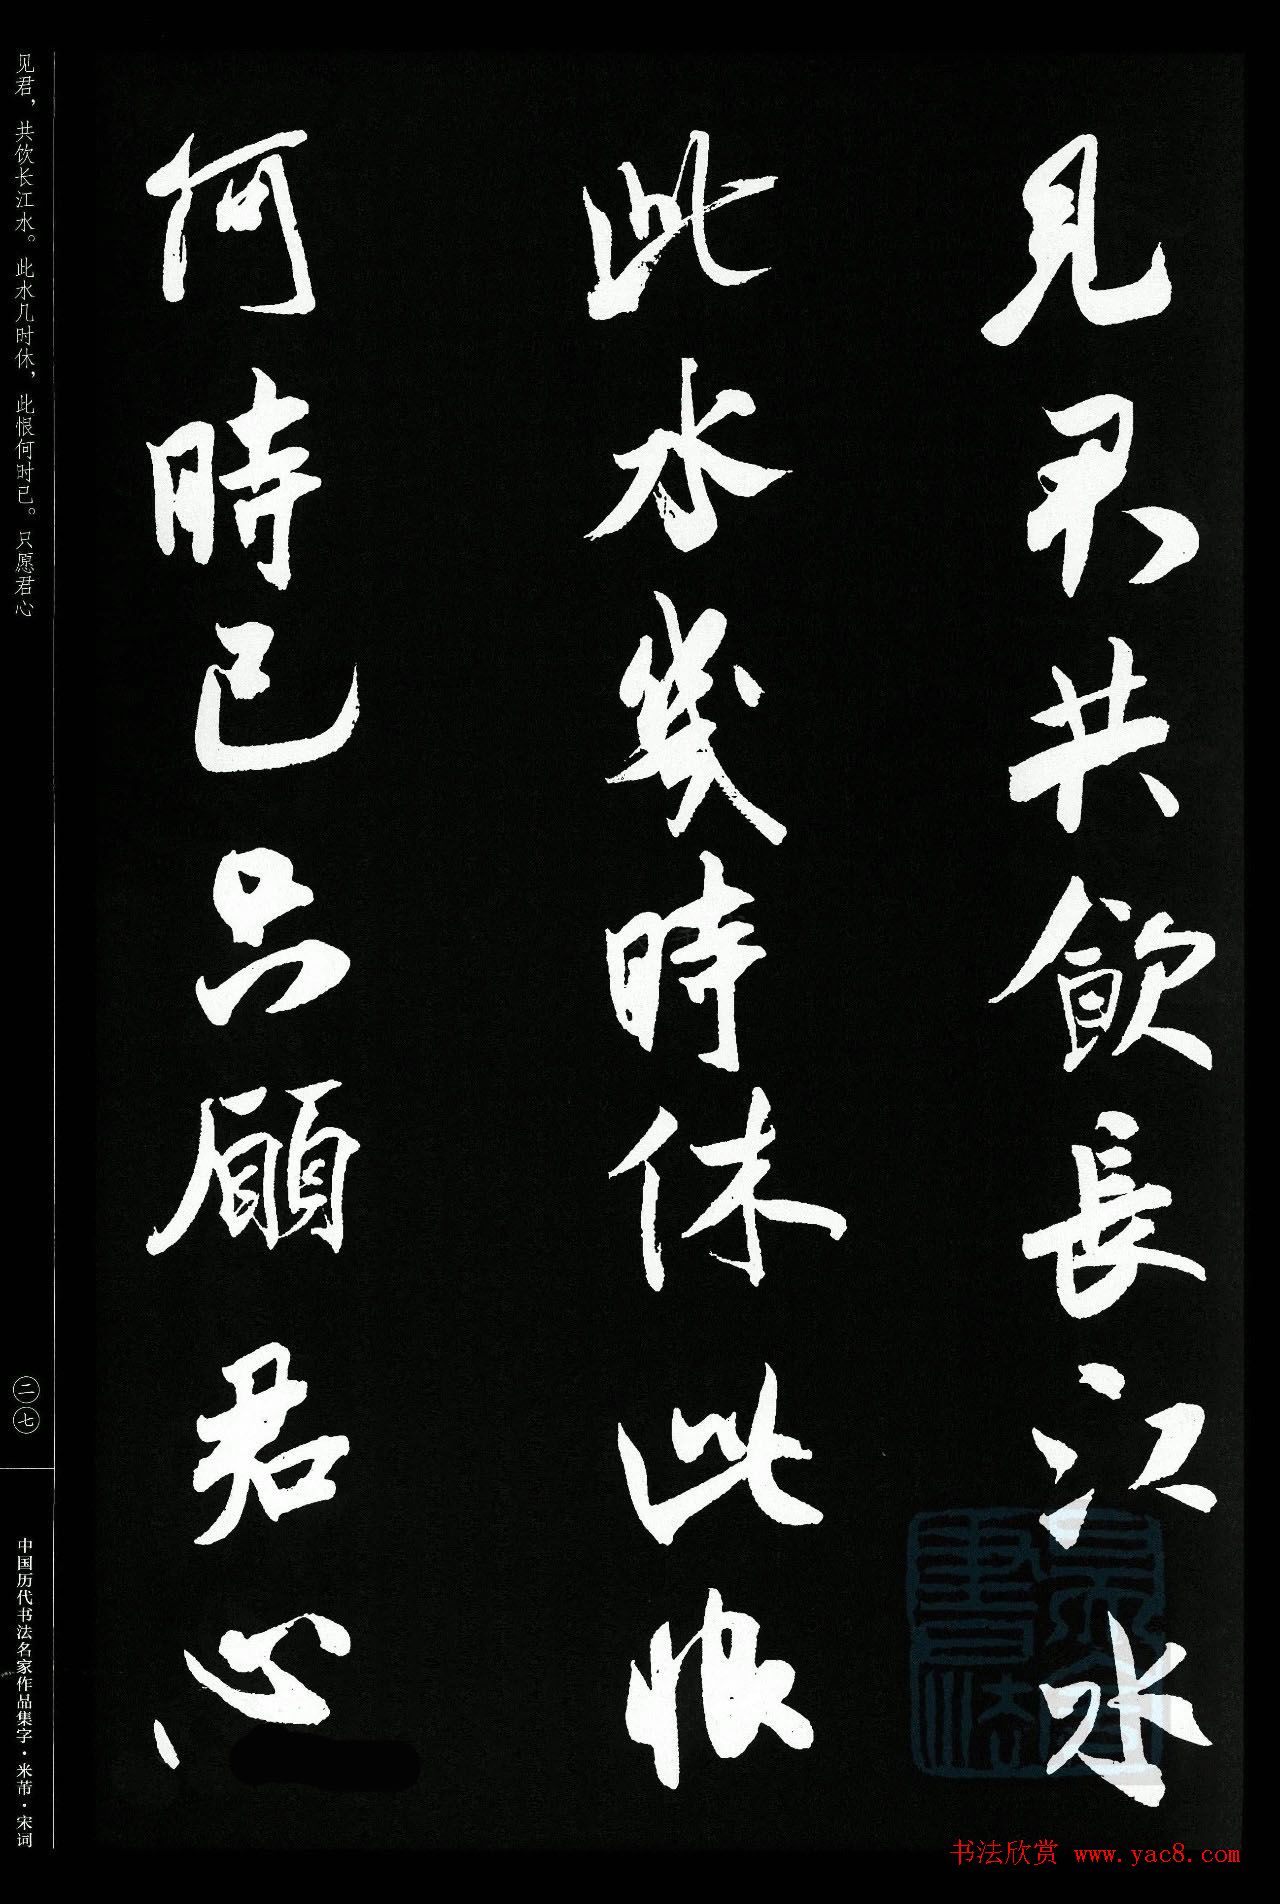 見君共飲長江水
此水幾時休此恨
何時已只願君心
见君，共饮长江水。此水几时休，此恨何时已。只愿君心
二七
中国历代书法名家作品集字·米芾·宋词
书法欣赏 www.yac8.com